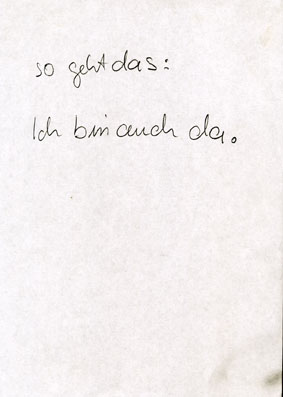 so geht das:
Ich bin auch da.